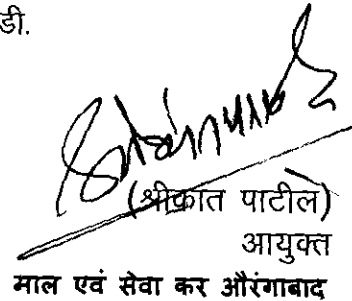 डी.
(श्रीकांत पाटील)
आयुक्त
माल एवं सेवा कर औरंगाबाद